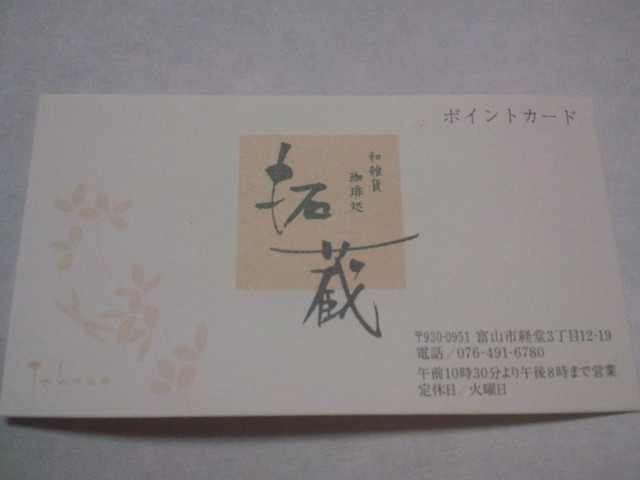 ポイントカード
和雑貨
珈琲処
拓蔵
〒930-0951 富山市経堂3丁目12-19
電話／076-491-6780
午前10時30分より午後8時まで営業
定休日／火曜日